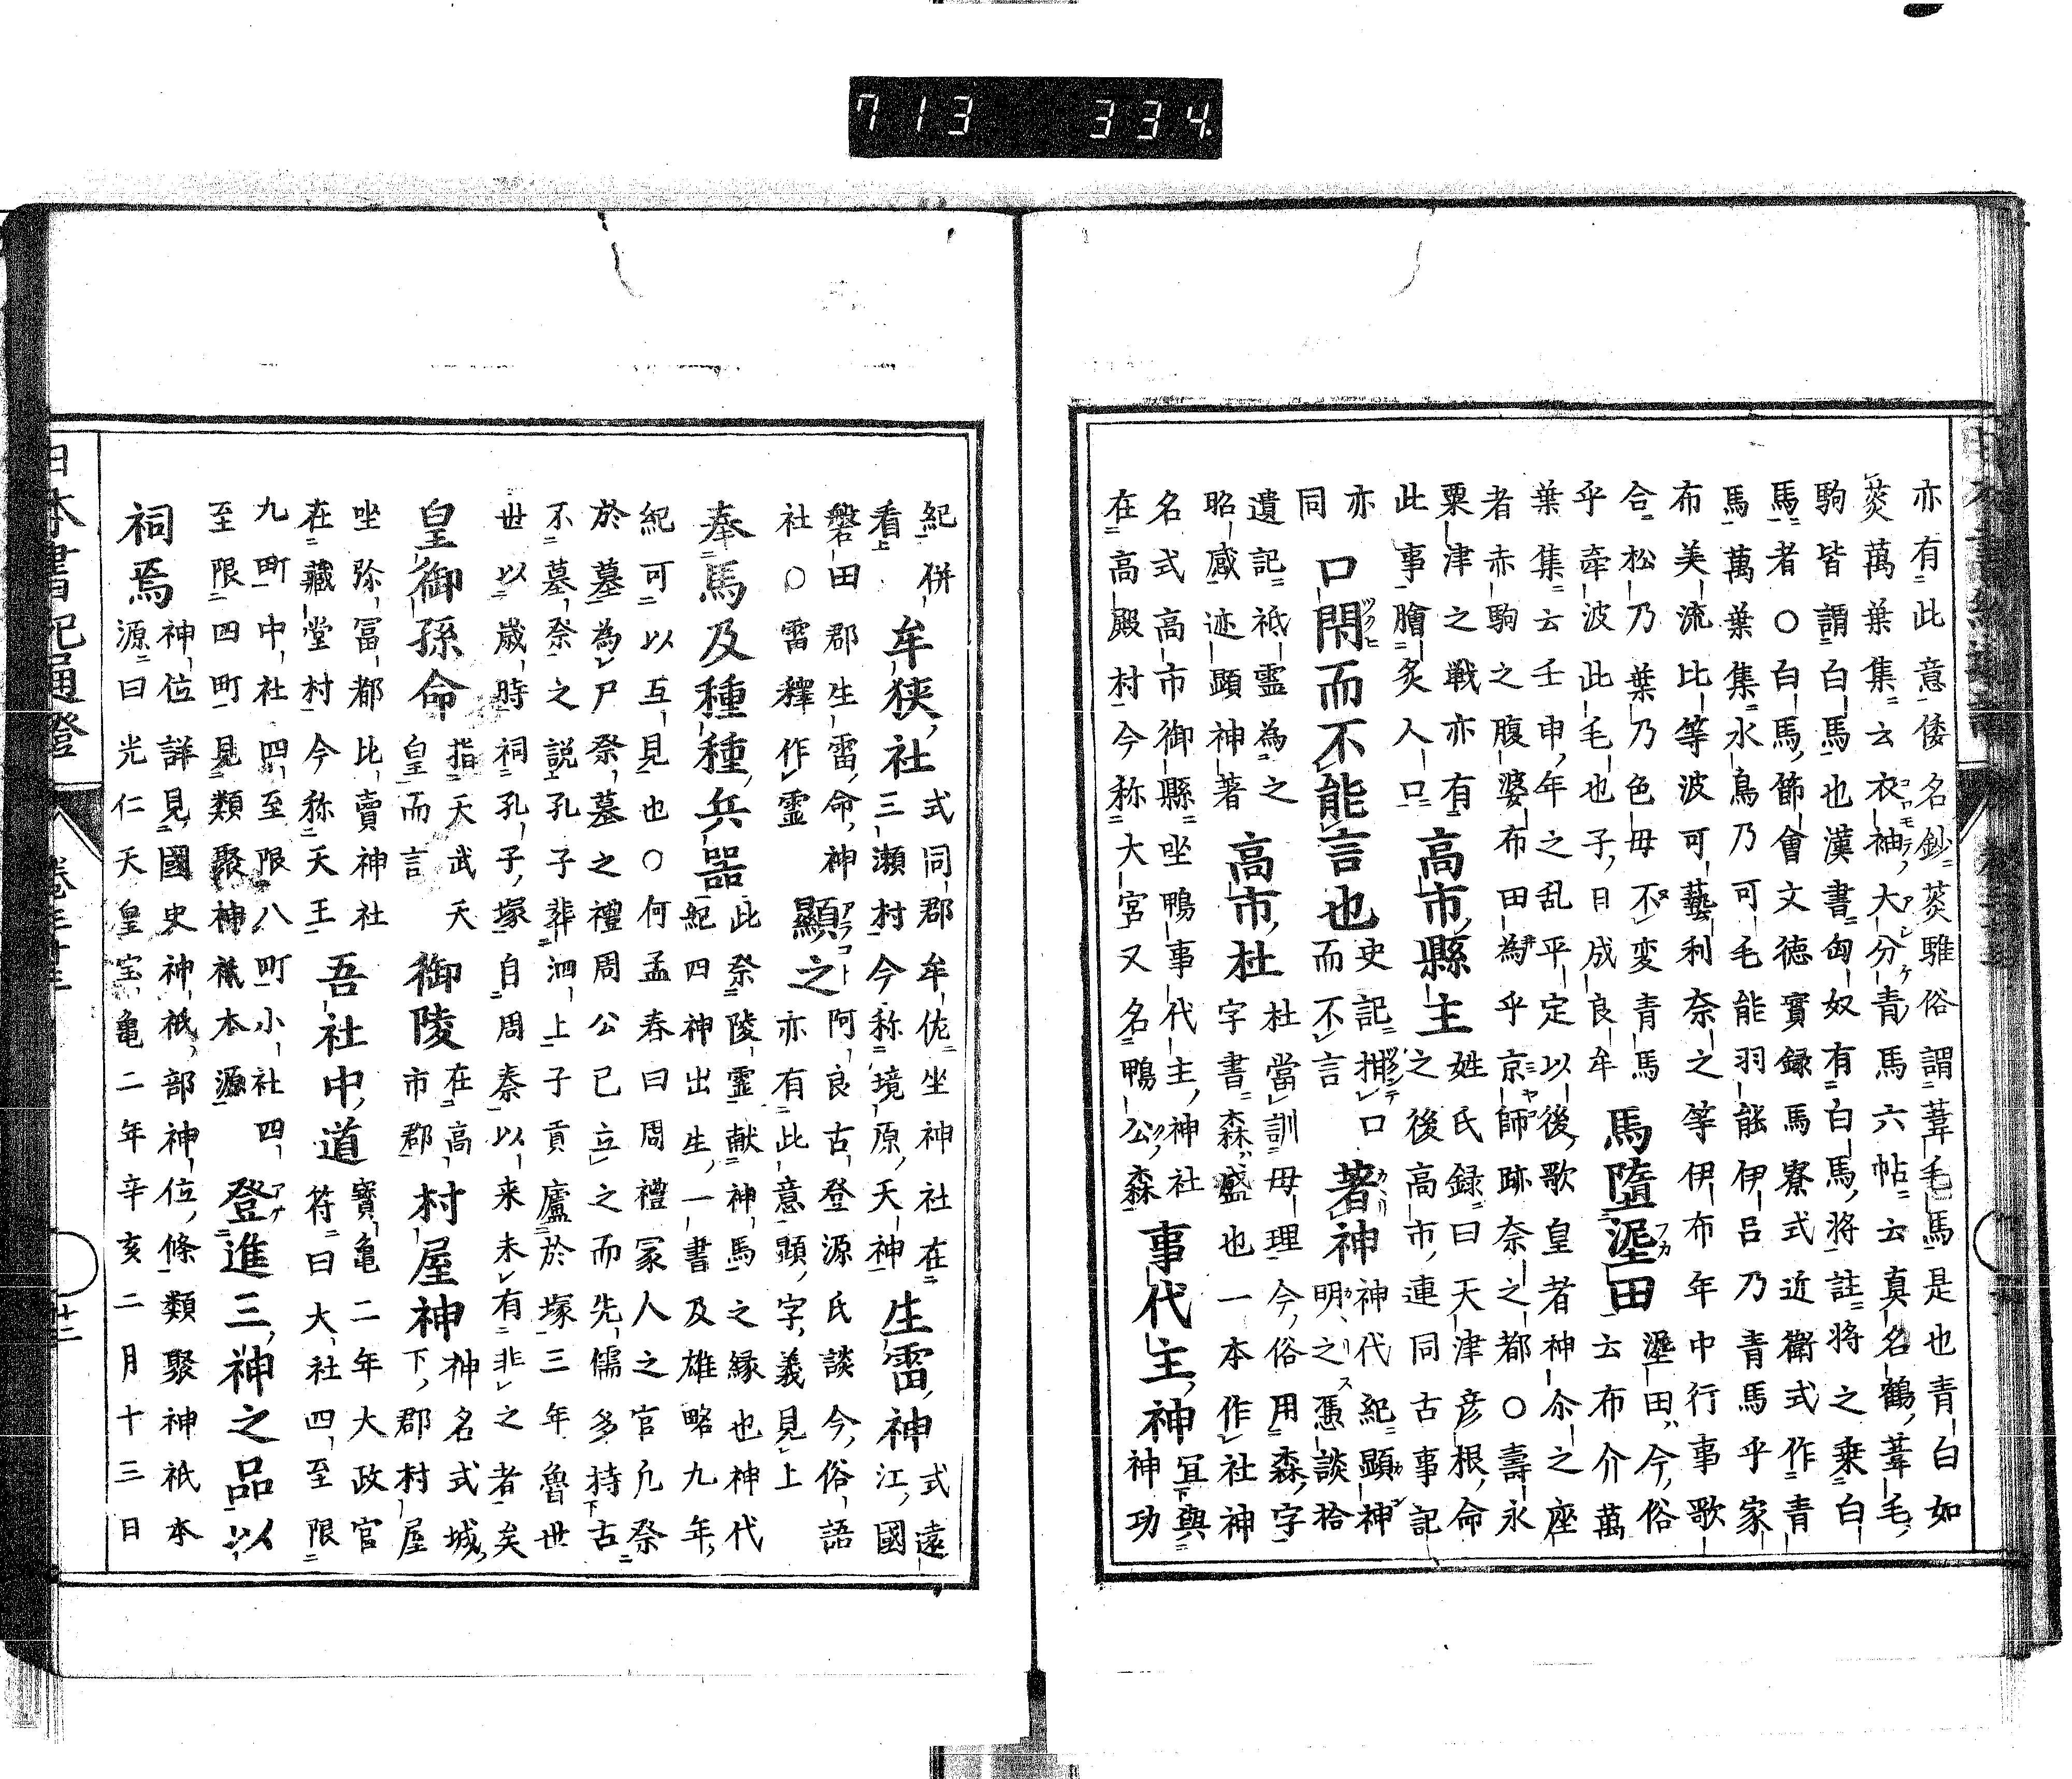 713 334.
亦有此意倭名鈔菼騅俗謂葦毛馬是也青白如
菼萬葉集云衣袖大分青馬六帖云真名鶴葦毛
駒皆謂白馬也漢書匈奴有白馬将註将之乗白
馬者〇白馬節會文徳實録馬寮式近衛式作青
馬萬葉集水鳥乃可毛能羽能伊呂乃青馬乎家
布美流比等波可藝利奈之等伊布年中行事歌
合松乃葉乃色毋不変青馬
乎牽波此毛也子日成良牟
馬墮渥田
渥田今俗
云布介萬
葉集云壬申年之乱平定以後歌皇者神尓之座
者赤駒之腹婆布田為乎京師跡奈之都〇壽永
粟津之戦亦有
此事膾炙人口
高市縣主
姓氏録曰天津彦根命
之後高市連同古事記
亦
同
口閇而不能言也
史記拑口
而不言
著神
神代紀顕神
明之憑談拾
遺記祇靈為之
昭感迹顕神著
高市社
杜當訓毋理今俗用森字
字書森盛也一本作社神
名式高市御縣坐鴨事代主神社
在高殿村今称大宮又名鴨公森
事代主神
冝與
神功
紀
看
併
牟狭社
式同郡牟佐坐神社在
三瀬村今称境原天神
生雷神
式遠
江國
磐田郡生雷命神
社〇雷釋作霊
顯之
阿良古登源氏談今俗語
亦有此意顕字義見上
奉馬及種種兵器
此祭陵霊献神馬之縁也神代
紀四神出生一書及雄略九年
紀可以互見也〇何孟春曰周禮冢人之官凡祭
於墓為尸祭墓之禮周公已立之而先儒多持古
不墓祭之説孔子葬泗上子貢廬於塚三年魯世
世以歳時祠孔子塚自周秦以来未有非之者矣
皇御孫命
指天武天
皇而言
御陵
在高
市郡
村屋神
神名式城
下郡村屋
坐弥冨都比賣神社
在藏堂村今称天王
吾社中道
寳亀二年大政官
符曰大社四至限
九町中社四至限八町小社四
至限四町見類聚神祇本源
登進三神之品以
祠焉
神位詳見國史神祇部神位條類聚神祇本
源曰光仁天皇宝亀二年辛亥二月十三日
日本書紀通證
廿二